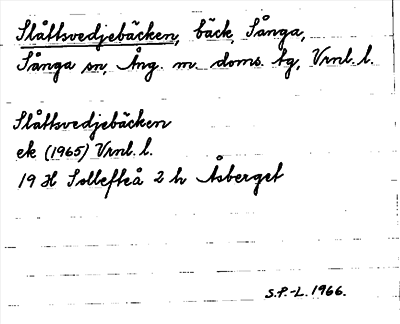 Slåttsvedjebäcken, bäck, Sånga,
Sånga sn, Ång. m. doms. tg, Vrnl. l.
Slåttsvedjebäcken
ek (1965) Vrnl. l.
19 H Sollefteå 2 h Åsberget
S.P.-L. 1966.